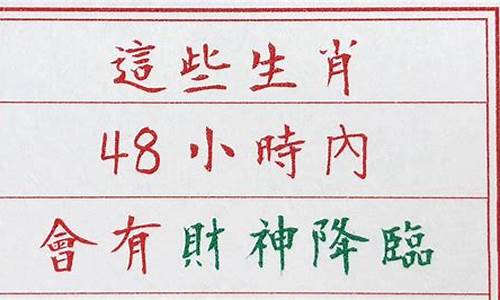 這些生肖
48小時內
會有財神降臨